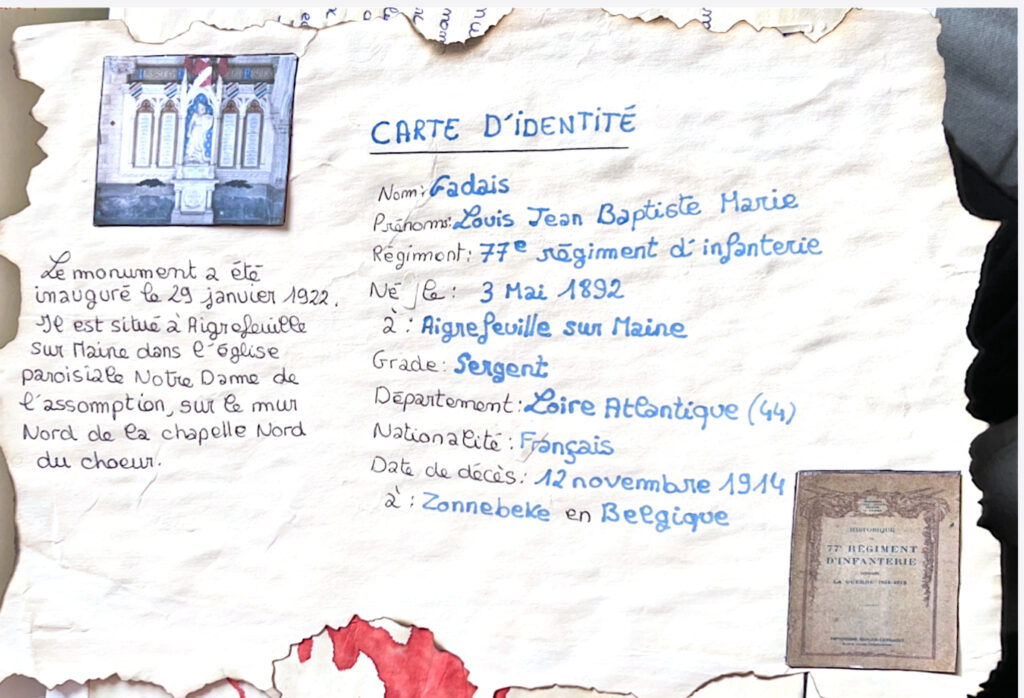 CARTE D'IDENTITÉ
Nom: Gadais
Prénoms: Louis Jean Baptiste Marie
Régiment: 77e régiment d'infanterie
Né le: 3 Mai 1892
à: Aigrefeuille sur Maine
Grade: Sergent
Département: Loire Atlantique (44)
Nationalité: Français
Date de décès: 12 novembre 1914
à: Zonnebeke en Belgique
Le monument a été
inauguré le 29 janvier 1922.
Il est situé à Aigrefeuille
sur Maine dans l'Église
paroisiale Notre Dame de
l'assomption, sur le mur
Nord de la chapelle Nord
du choeur.
HISTORIQUE
77e RÉGIMENT
D'INFANTERIE
LA GUERRE 1914-1918